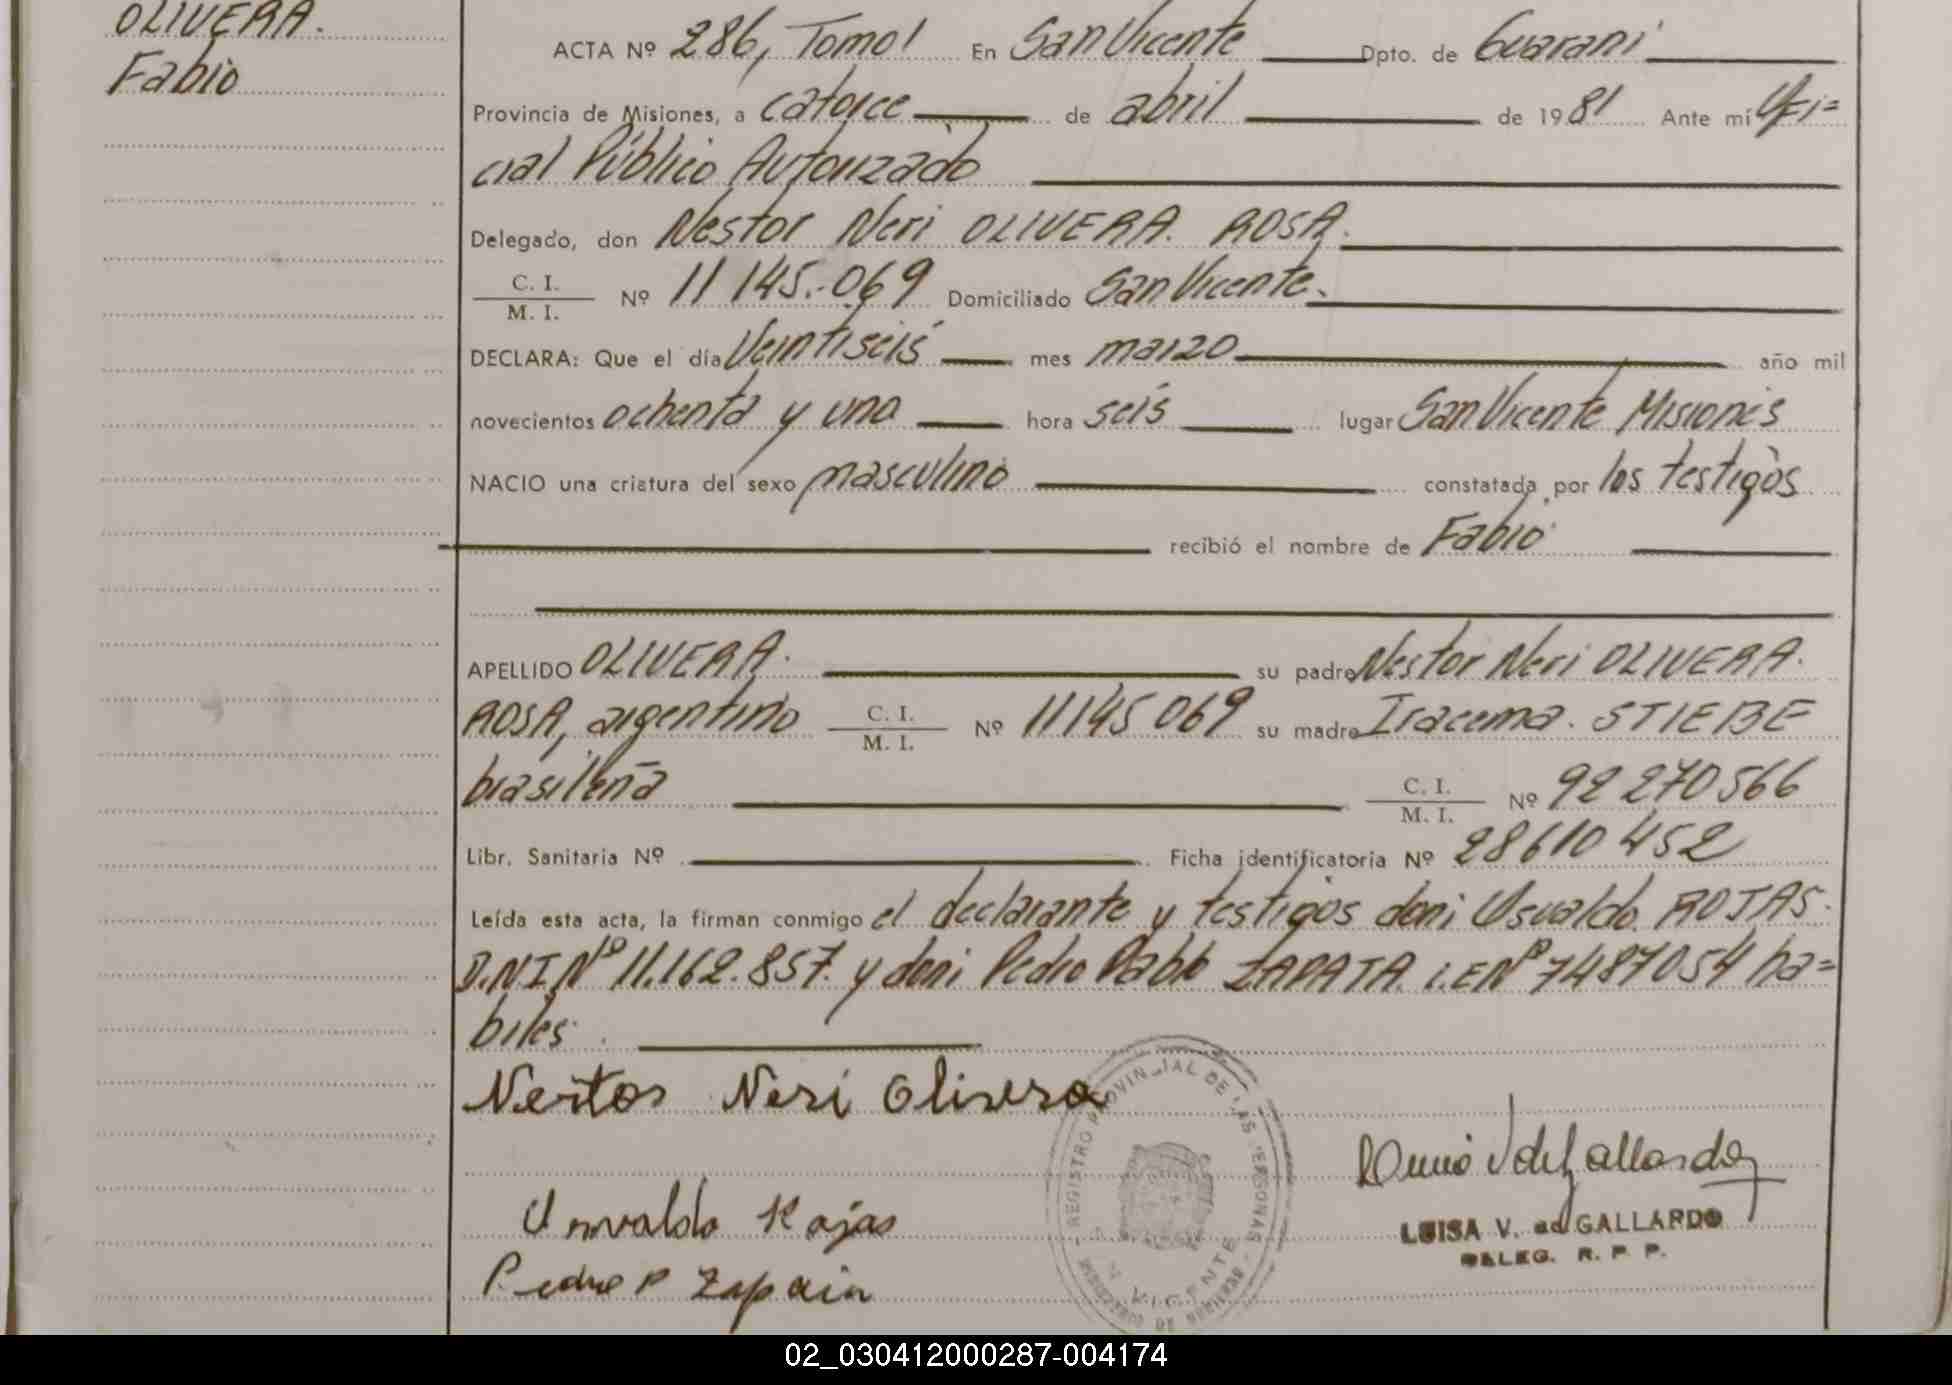 OLIVERA.
Fabio
ACTA Nº 286, Tomo I En San Vicente Dpto. de Guarani
Provincia de Misiones, a catorce de abril de 1981 Ante mí Ofi=
cial Público Autorizado
Delegado, don Nestor Neri OLIVERA. ROSA.
C. I.
M. I. Nº 11 145.069 Domiciliado San Vicente.
DECLARA: Que el día Veintiseis mes marzo año mil
novecientos ochenta y uno hora seis lugar San Vicente Misiones
NACIO una criatura del sexo masculino constatada por los testigos
recibió el nombre de Fabio
APELLIDO OLIVERA. su padre Nestor Neri OLIVERA.
ROSA, argentino C. I. M. I. Nº 11145069 su madre Iracema. STIEBE
brasileña C. I. M. I. Nº 92 270566
Libr. Sanitaria Nº Ficha identificatoria Nº 28610452
Leída esta acta, la firman conmigo el declarante y testigos don: Usvaldo ROJAS.
D.N.I Nº 11.162.857. y don: Pedro Pablo ZAPATA. L.E Nº 7487054 ha=
biles
Nestor Neri Olivera
REGISTRO PROVINCIAL DE LAS PERSONAS
VICENTE
Usvaldo Rojas
Pedro P Zapata
LUISA V. de GALLARDO
DELEG. R. P. P.
02_030412000287-004174